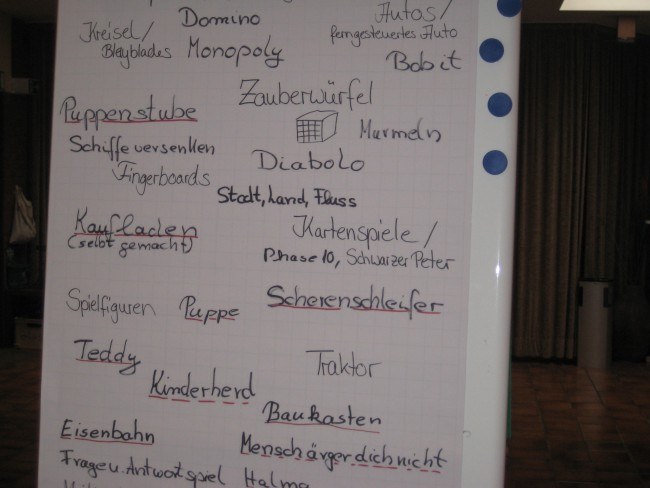 Domino
Autos/
Kreisel/
ferngesteuertes Auto
Bleyblades
Monopoly
Bobit
Zauberwürfel
Puppenstube
Murmeln
Schiffe versenken
Diabolo
Fingerboards
Stadt, Land, Fluss
Kaufladen
(selbt gemacht)
Kartenspiele/
Phase 10, Schwarzer Peter
Spielfiguren
Puppe
Scherenschleifer
Teddy
Traktor
Kinderherd
Baukasten
Eisenbahn
Mensch ärger dich nicht
Frage u. Antwortspiel
Halma